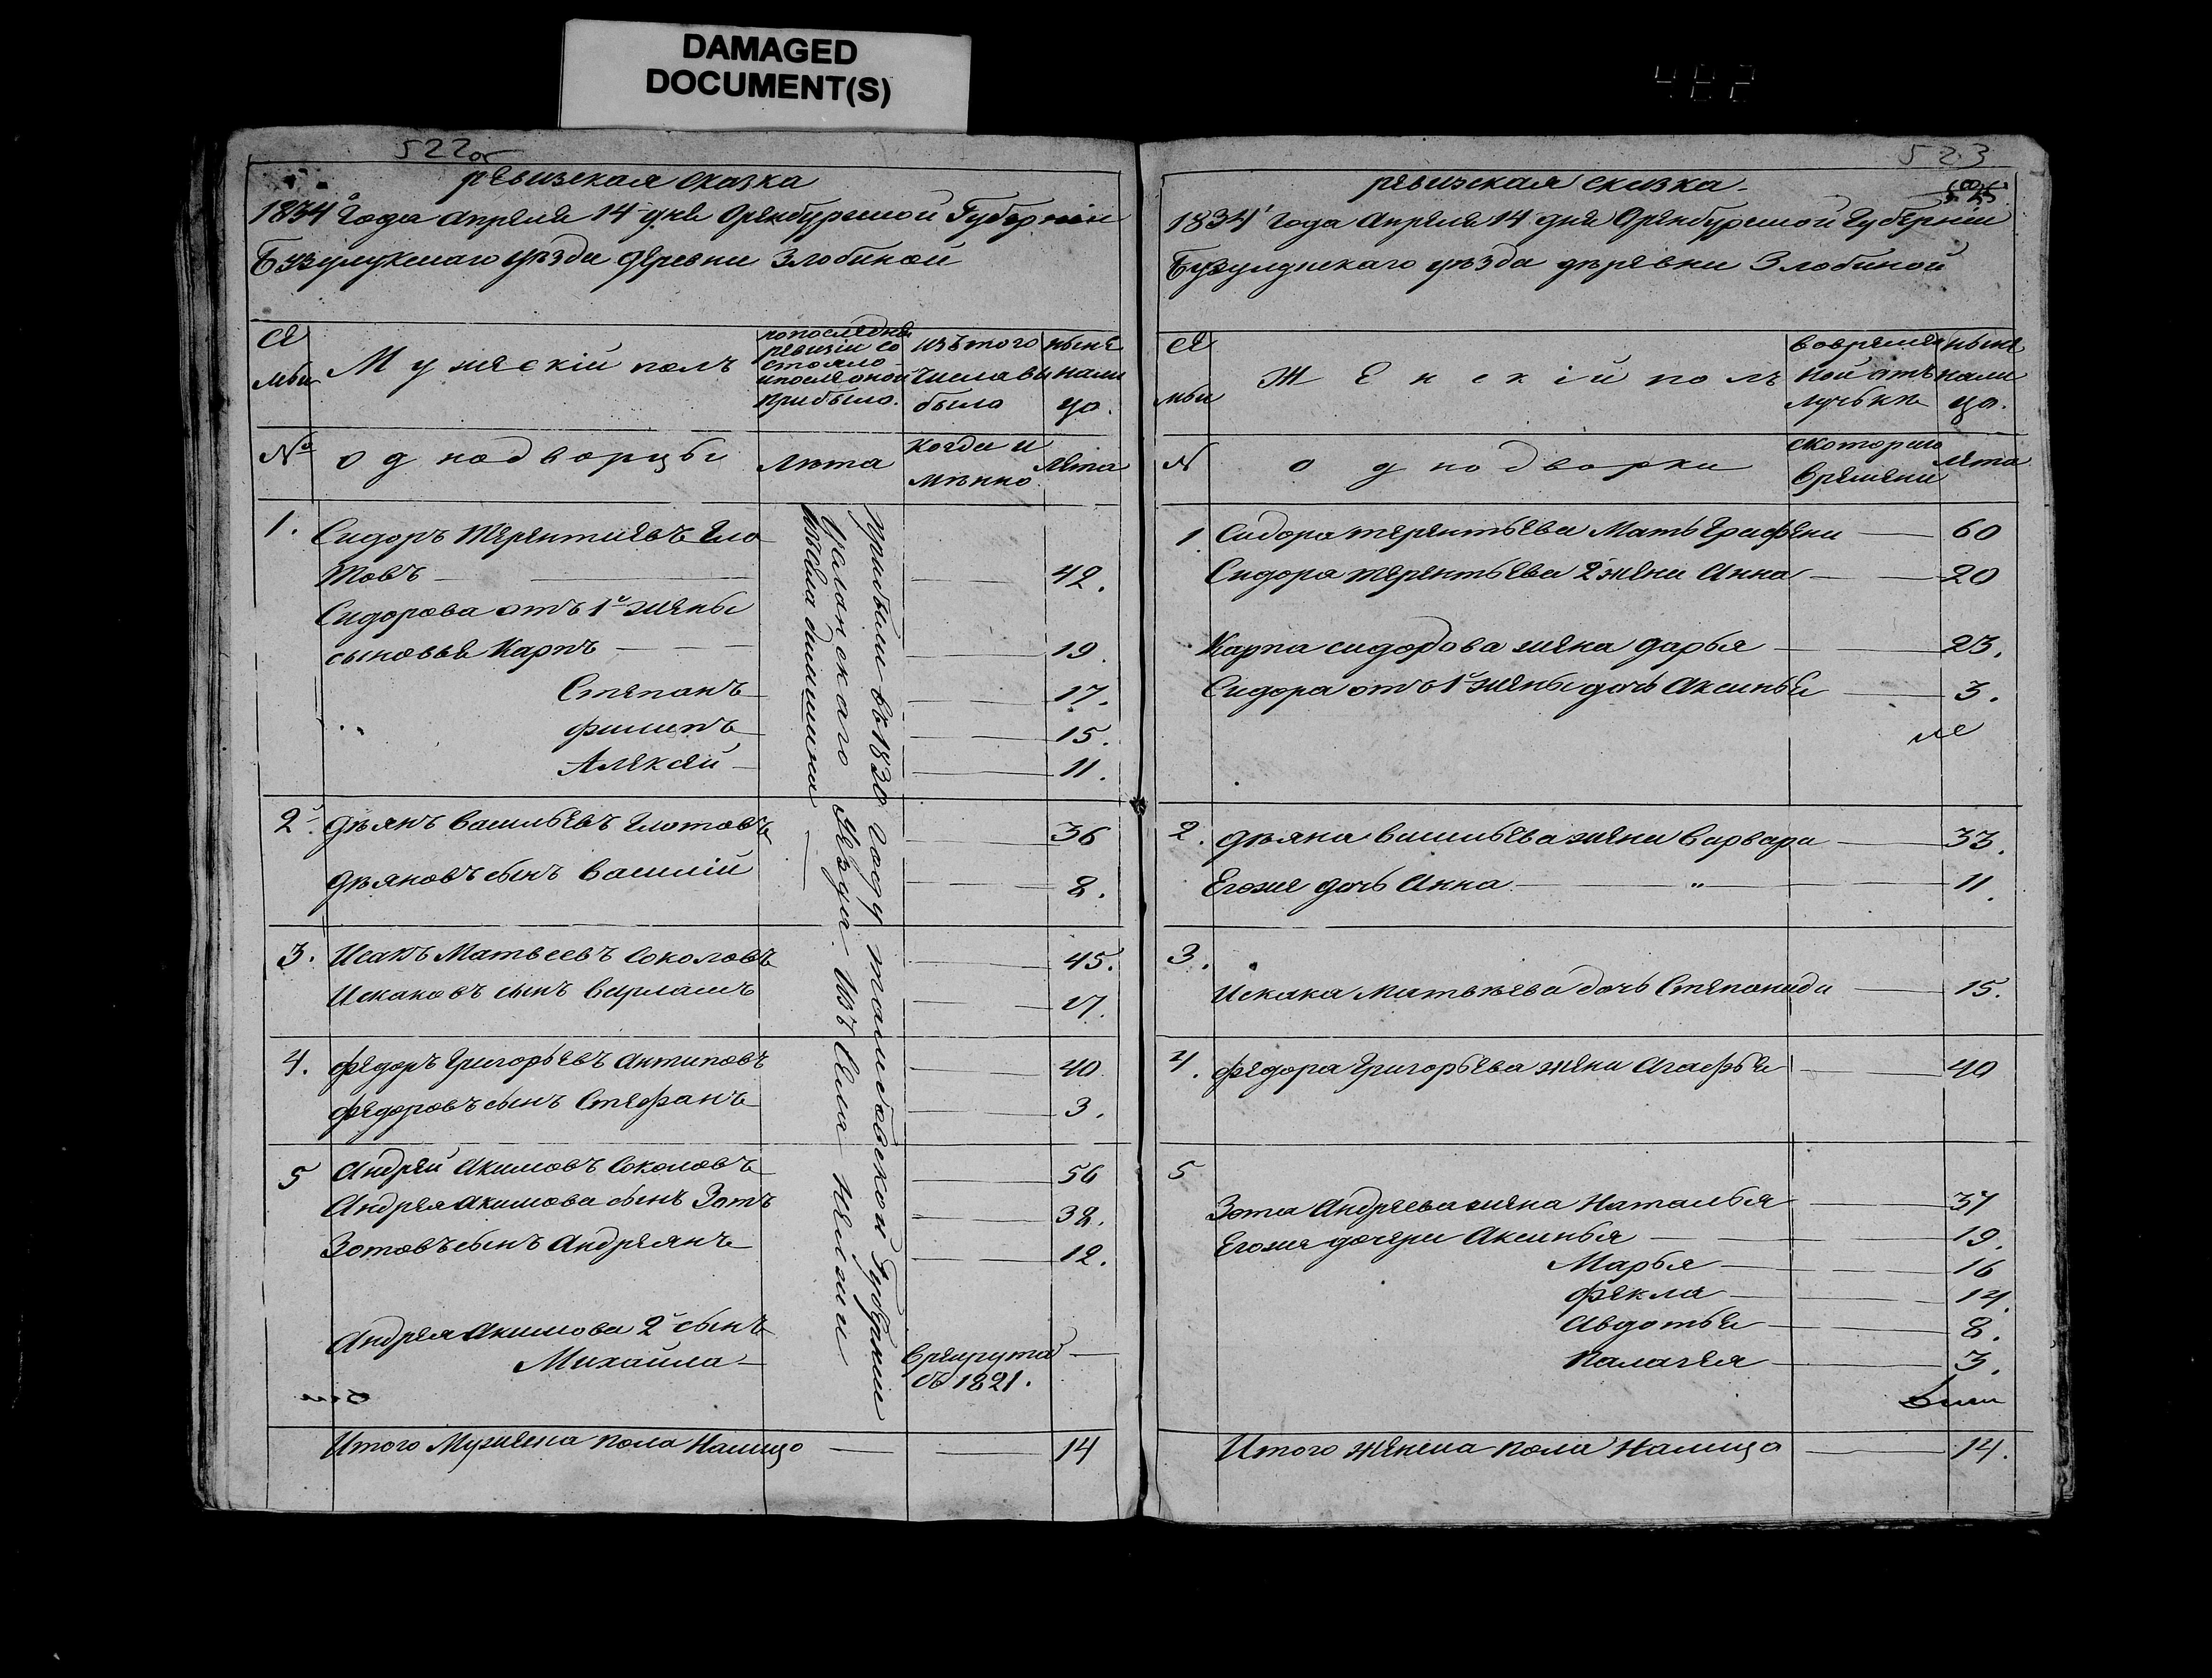 DAMAGED
DOCUMENT(S)
482
522об
ревизская сказка
1834го Года апреля 14 дня Оренбургской Губернии
Бузулукскаго уезда деревни Злобиной
Се
мьи
Мужескій полъ
попоследней
ревизіи со
стояло
ипосле оной
прибыло.
изътого
числа вы
было
ныне
нали
цо.
№
однодворцы
Лѣта
когда и
мѣнно
лета
1. Сидоръ Терентиевъ Гло
товъ 42.
Сидорова отъ 1й жены
сыновья Карпъ 19.
Степанъ 17.
Филипъ 15.
Алексей 11.
2. Дѣянъ Васильевъ Глотовъ 36
Дѣяновъ сынъ Василій 8.
3. Исакъ Матвеевъ Соколовъ 45.
Исаковъ сынъ Варламъ 17.
4. Федоръ Григорьевъ Антиповъ 40
Федоровъ сынъ Стефанъ 3.
5 Андрей Акимовъ Соколовъ 56
Андрея Акимова сынъ Зотъ 38.
Зотовъ сынъ Андреянъ 12.
Андрея Акимова 2й сынъ
Михайла
Врекрута
съ 1821.
прибыли въ 1830 году тамбовской Губернии
Усманскаго Уезда изъ Села
Итого Мужеска пола Налицо 14
523
ревизская сказка
1834го Года Апреля 14 дня Оренбургской Губерніи
Бузулукскаго уѣзда деревни Злобиной
Се
мьи
Женскій полъ
вовремен
ной отъ
лучькѣ
ныне
нали
цо.
№
однодворки
скотораго
времени
лета
1 Сидора терентьева Мать Графена 60
Сидора терентьева 2я жена Анна 20
Карпа сидорова жена дарья 23.
Сидора отъ 1й жены дочь Аксинья 3.
2. Дѣяна Васильева жена Варвара 33.
Егоже дочь Анна " 11.
3.
Исакака Матвѣева дочь Степанида 15.
4. Федора Григорьева жена Агафья 40
5
Зота Андреева жена Наталья 37
Егоже дочери Аксинья 19.
Марья 16
Фекла 14.
Авдотья 8.
Палагея 3.
Итого женска пола Налицо 14.